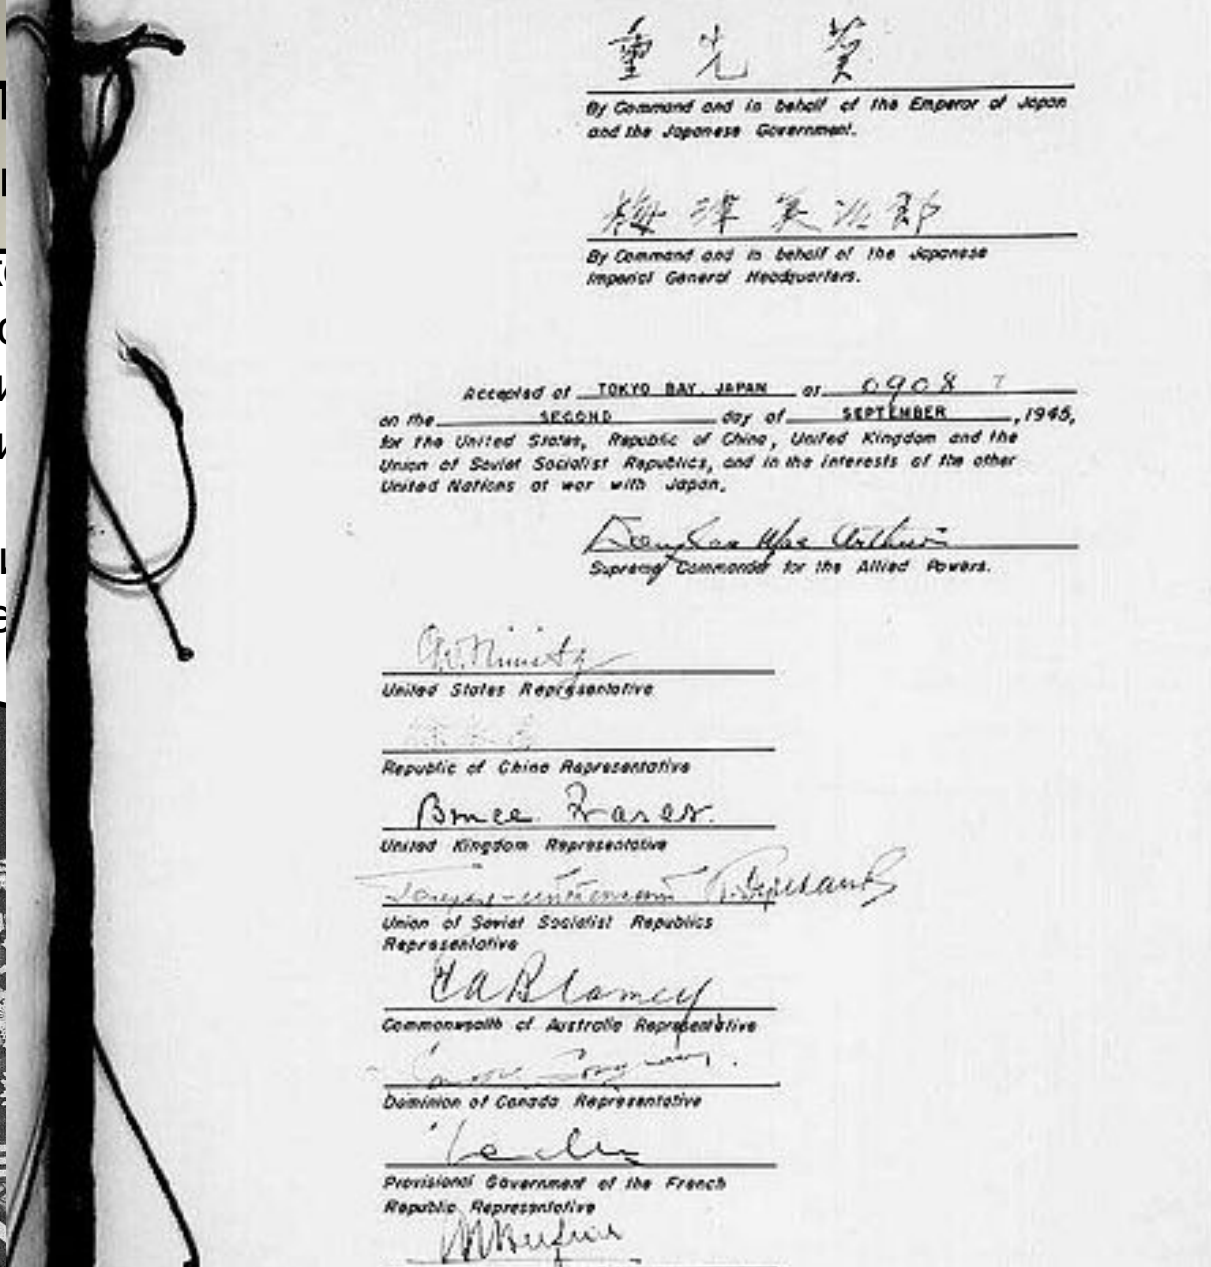 重光葵
By Command and in behalf of the Emperor of Japan
and the Japanese Government.
梅津美治郎
By Command and in behalf of the Japanese
Imperial General Headquarters.
Accepted at TOKYO BAY, JAPAN at 0908 I
on the SECOND day of SEPTEMBER, 1945,
for the United States, Republic of China, United Kingdom and the
Union of Soviet Socialist Republics, and in the interests of the other
United Nations at war with Japan.
Douglas MacArthur
Supreme Commander for the Allied Powers.
C.W. Nimitz
United States Representative
Republic of China Representative
Bruce Fraser.
United Kingdom Representative
Union of Soviet Socialist Republics
Representative
T A Blamey
Commonwealth of Australia Representative
Dominion of Canada Representative
Provisional Government of the French
Republic Representative